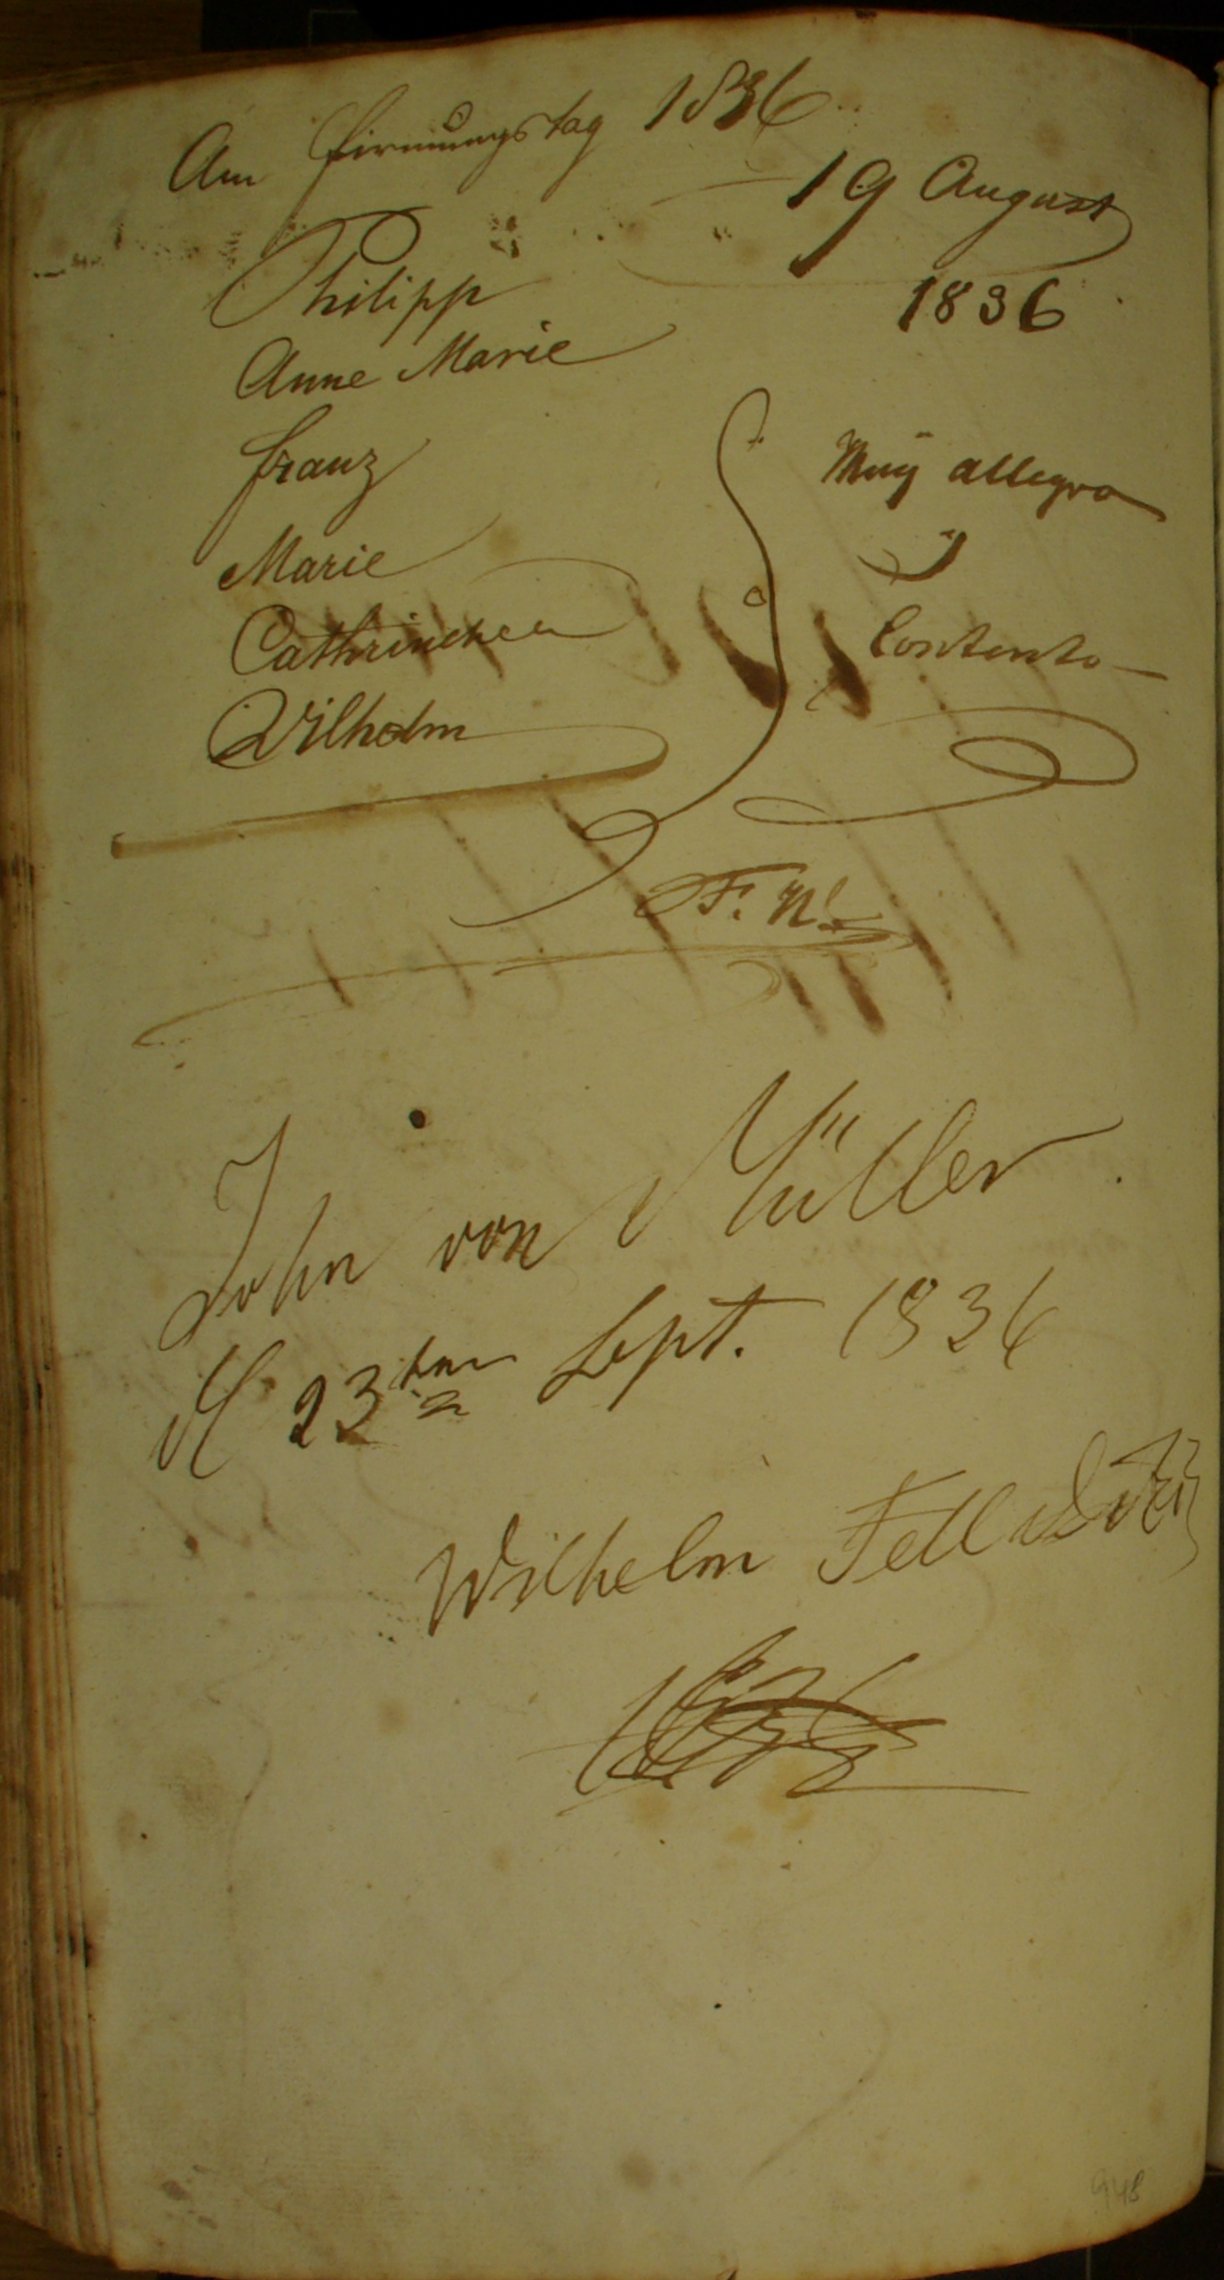 Am Firmungstag 1836
19 August
1836
Philipp
Anne Marie
Franz
Marie
Cathrinchen
Wilhelm
Muÿ allegro
y
Contento
F. W.
John von Müller
d 23ten Sept. 1836
Wilhelm Tell
948